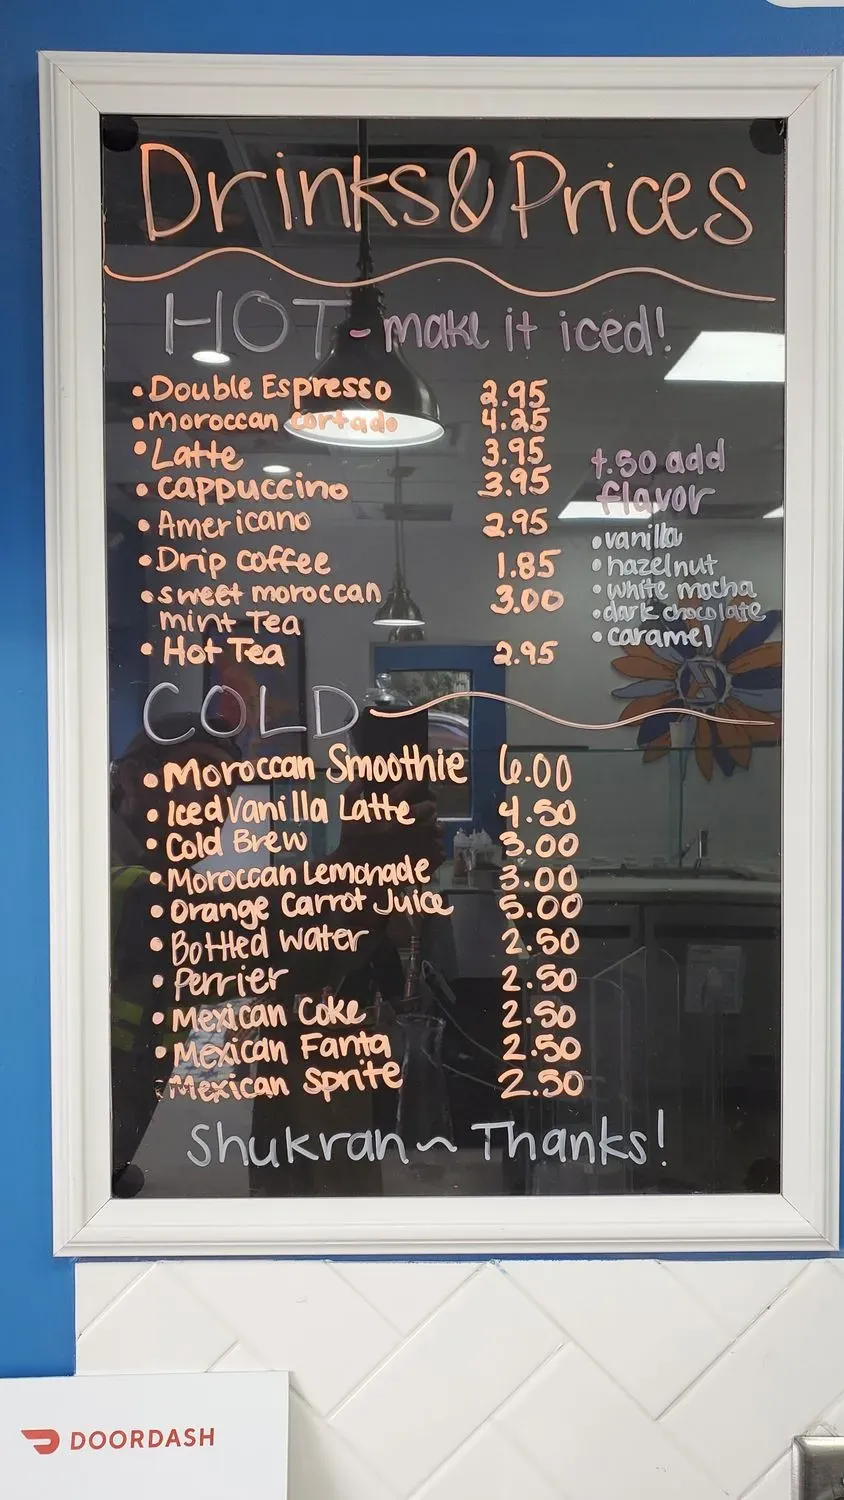 Drinks & Prices
HOT - make it iced!
• Double Espresso 2.95
• Moroccan cortado 4.25
• Latte 3.95
• cappuccino 3.95
• Americano 2.95
• Drip coffee 1.85
• sweet moroccan 3.00
mint Tea
• Hot Tea 2.95
+.50 add
flavor
• vanilla
• hazelnut
• white mocha
• dark chocolate
• caramel
COLD
• Moroccan Smoothie 6.00
• Iced Vanilla Latte 4.50
• Cold Brew 3.00
• Moroccan Lemonade 3.00
• Orange Carrot Juice 5.00
• Bottled Water 2.50
• Perrier 2.50
• Mexican Coke 2.50
• Mexican Fanta 2.50
• Mexican Sprite 2.50
Shukran ~ Thanks!
DOORDASH